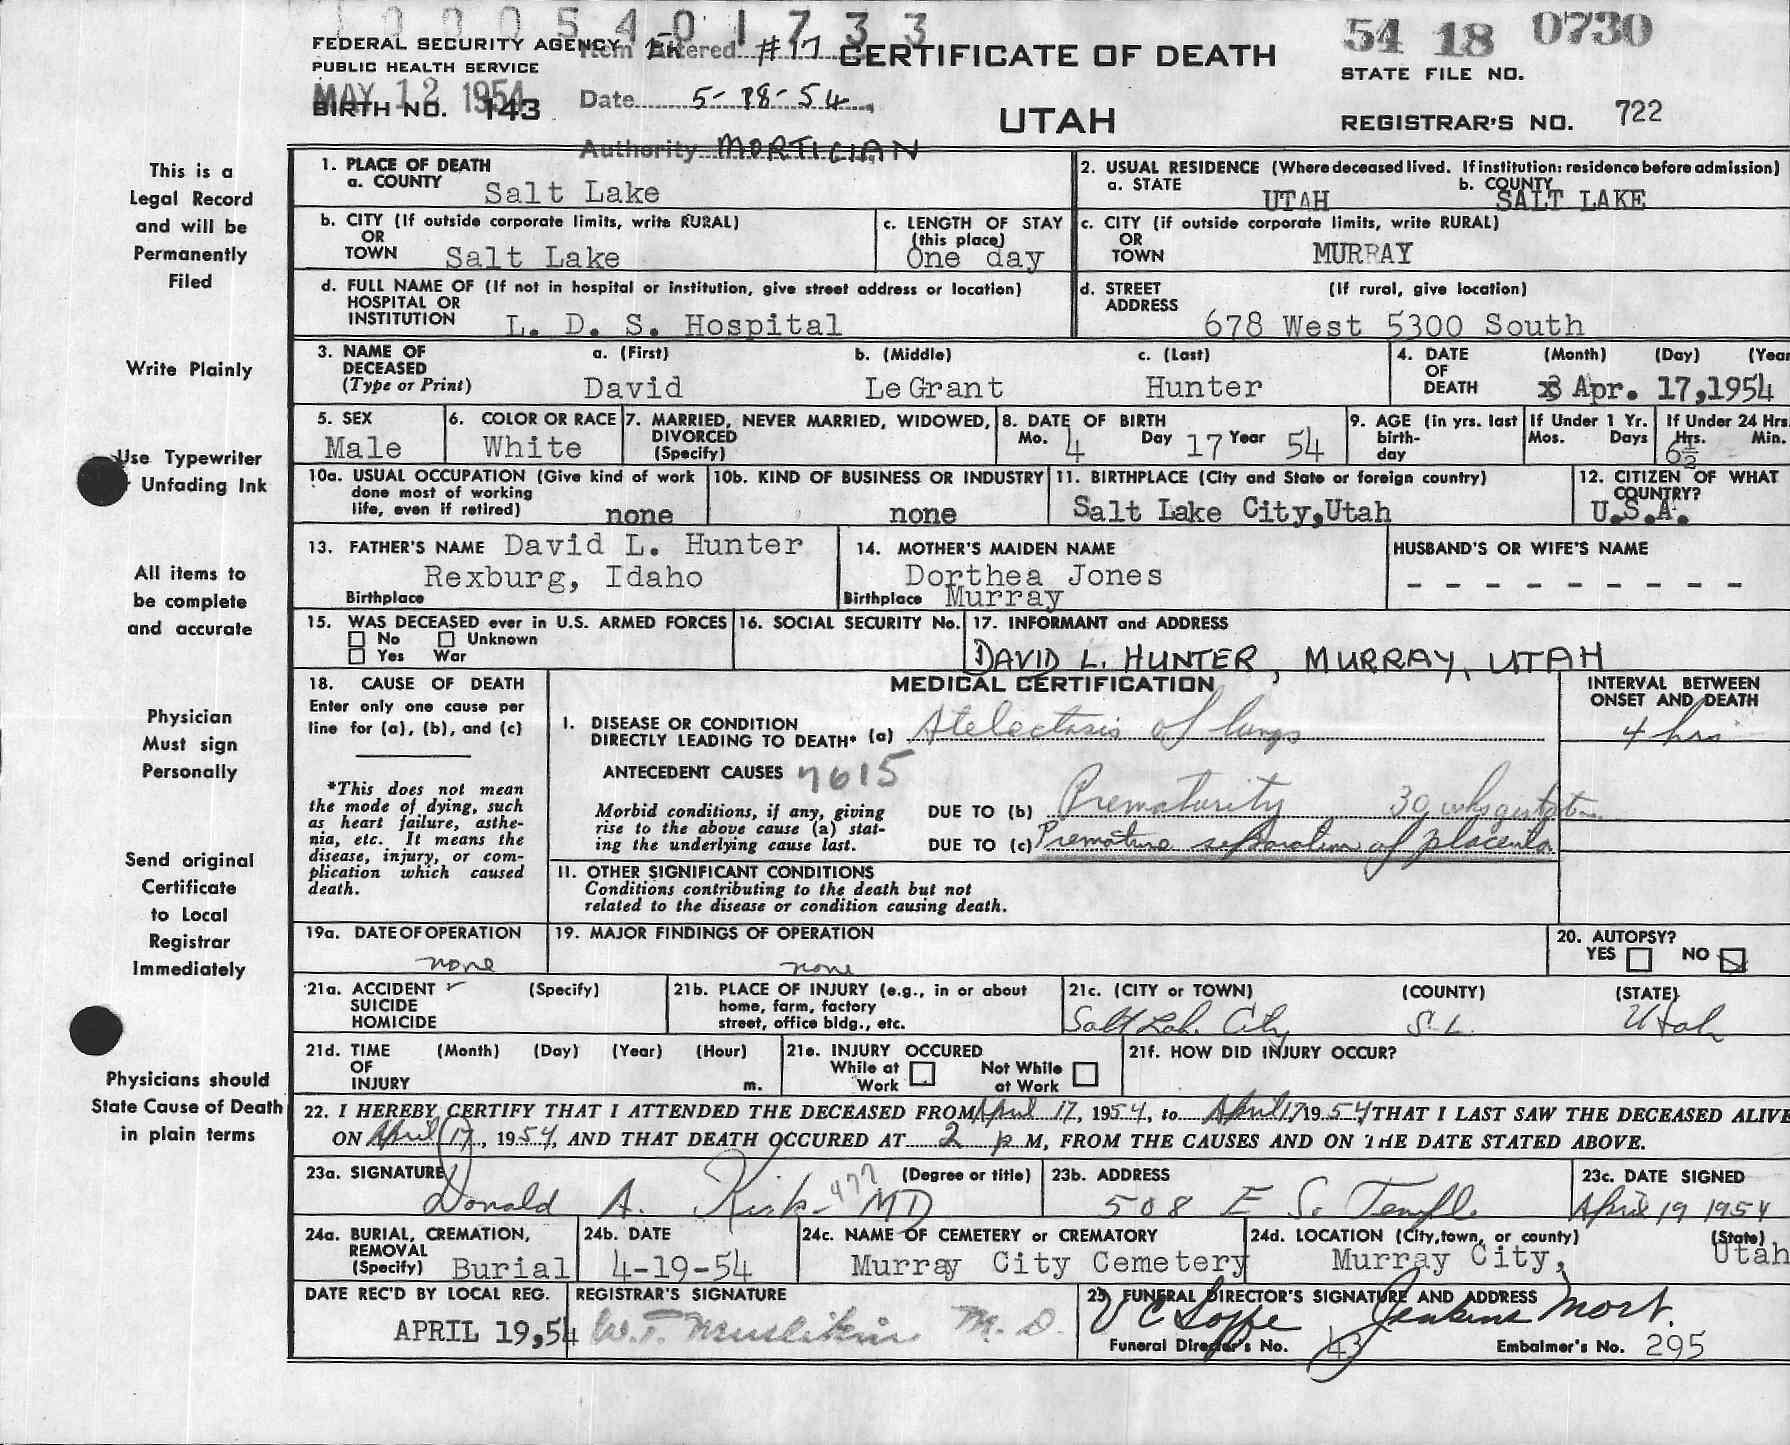 1 0 0 0 5 4 0 1 7 3 3
FEDERAL SECURITY AGENCY
PUBLIC HEALTH SERVICE
MAY 12 1954
BIRTH NO. 143
Item Entered #17
Date 5-18-54
Authority MORTICIAN
CERTIFICATE OF DEATH
UTAH
54 18 0730
STATE FILE NO.
REGISTRAR'S NO. 722
This is a
Legal Record
and will be
Permanently
Filed
Write Plainly
Use Typewriter
Unfading Ink
All items to
be complete
and accurate
Physician
Must sign
Personally
Send original
Certificate
to Local
Registrar
Immediately
Physicians should
State Cause of Death
in plain terms
1. PLACE OF DEATH
a. COUNTY Salt Lake
2. USUAL RESIDENCE (Where deceased lived. If institution: residence before admission)
a. STATE UTAH b. COUNTY SALT LAKE
b. CITY (If outside corporate limits, write RURAL)
OR
TOWN Salt Lake
c. LENGTH OF STAY
(this place)
One day
c. CITY (if outside corporate limits, write RURAL)
OR
TOWN MURRAY
d. FULL NAME OF (If not in hospital or institution, give street address or location)
HOSPITAL OR
INSTITUTION L. D. S. Hospital
d. STREET (If rural, give location)
ADDRESS
678 West 5300 South
3. NAME OF a. (First) b. (Middle) c. (Last)
DECEASED
(Type or Print) David LeGrant Hunter
4. DATE (Month) (Day) (Year
OF
DEATH Apr. 17,1954
5. SEX
Male
6. COLOR OR RACE
White
7. MARRIED, NEVER MARRIED, WIDOWED,
DIVORCED
(Specify)
8. DATE OF BIRTH
Mo. 4 Day 17 Year 54
9. AGE (in yrs. last
birth-
day
If Under 1 Yr.
Mos. Days
If Under 24 Hrs.
Hrs. Min.
6½
10a. USUAL OCCUPATION (Give kind of work
done most of working
life, even if retired) none
10b. KIND OF BUSINESS OR INDUSTRY
none
11. BIRTHPLACE (City and State or foreign country)
Salt Lake City,Utah
12. CITIZEN OF WHAT
COUNTRY?
U.S.A.
13. FATHER'S NAME David L. Hunter
Rexburg, Idaho
Birthplace
14. MOTHER'S MAIDEN NAME
Dorthea Jones
Birthplace Murray
HUSBAND'S OR WIFE'S NAME
- - - - - - - - -
15. WAS DECEASED ever in U.S. ARMED FORCES
No Unknown
Yes War
16. SOCIAL SECURITY No.
17. INFORMANT and ADDRESS
DAVID L. HUNTER, MURRAY, UTAH
18. CAUSE OF DEATH
Enter only one cause per
line for (a), (b), and (c)
*This does not mean
the mode of dying, such
as heart failure, asthe-
nia, etc. It means the
disease, injury, or com-
plication which caused
death.
MEDICAL CERTIFICATION
INTERVAL BETWEEN
ONSET AND DEATH
I. DISEASE OR CONDITION
DIRECTLY LEADING TO DEATH* (a) Atelectasis of lungs 4 hrs
ANTECEDENT CAUSES 7615
Morbid conditions, if any, giving
rise to the above cause (a) stat-
ing the underlying cause last.
DUE TO (b) Prematurity 30 wks gestation
DUE TO (c) Premature separation of placenta
II. OTHER SIGNIFICANT CONDITIONS
Conditions contributing to the death but not
related to the disease or condition causing death.
19a. DATE OF OPERATION
none
19. MAJOR FINDINGS OF OPERATION
none
20. AUTOPSY?
YES NO
21a. ACCIDENT (Specify)
SUICIDE
HOMICIDE
21b. PLACE OF INJURY (e.g., in or about
home, farm, factory
street, office bldg., etc.
21c. (CITY or TOWN) (COUNTY) (STATE)
Salt Lake City S. L. Utah
21d. TIME (Month) (Day) (Year) (Hour)
OF
INJURY m.
21e. INJURY OCCURED
While at Not While
Work at Work
21f. HOW DID INJURY OCCUR?
22. I HEREBY CERTIFY THAT I ATTENDED THE DECEASED FROM April 17, 1954, to April 17 1954 THAT I LAST SAW THE DECEASED ALIVE
ON April 17, 1954, AND THAT DEATH OCCURED AT 2 p M, FROM THE CAUSES AND ON THE DATE STATED ABOVE.
23a. SIGNATURE (Degree or title)
Donald A. Kirk 477 MD
23b. ADDRESS
508 E So. Temple
23c. DATE SIGNED
April 19 1954
24a. BURIAL, CREMATION,
REMOVAL
(Specify) Burial
24b. DATE
4-19-54
24c. NAME OF CEMETERY or CREMATORY
Murray City Cemetery
24d. LOCATION (City,town, or county) (State)
Murray City, Utah
DATE REC'D BY LOCAL REG.
APRIL 19,54
REGISTRAR'S SIGNATURE
W.T. M. D.
25 FUNERAL DIRECTOR'S SIGNATURE AND ADDRESS
Jenkins Mort.
Funeral Director's No. 43 Embalmer's No. 295